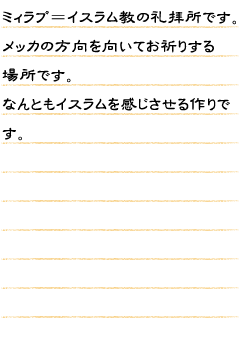 ミィラプ＝イスラム教の礼拝所です。
メッカの方向を向いてお祈りする
場所です。
なんともイスラムを感じさせる作りで
す。